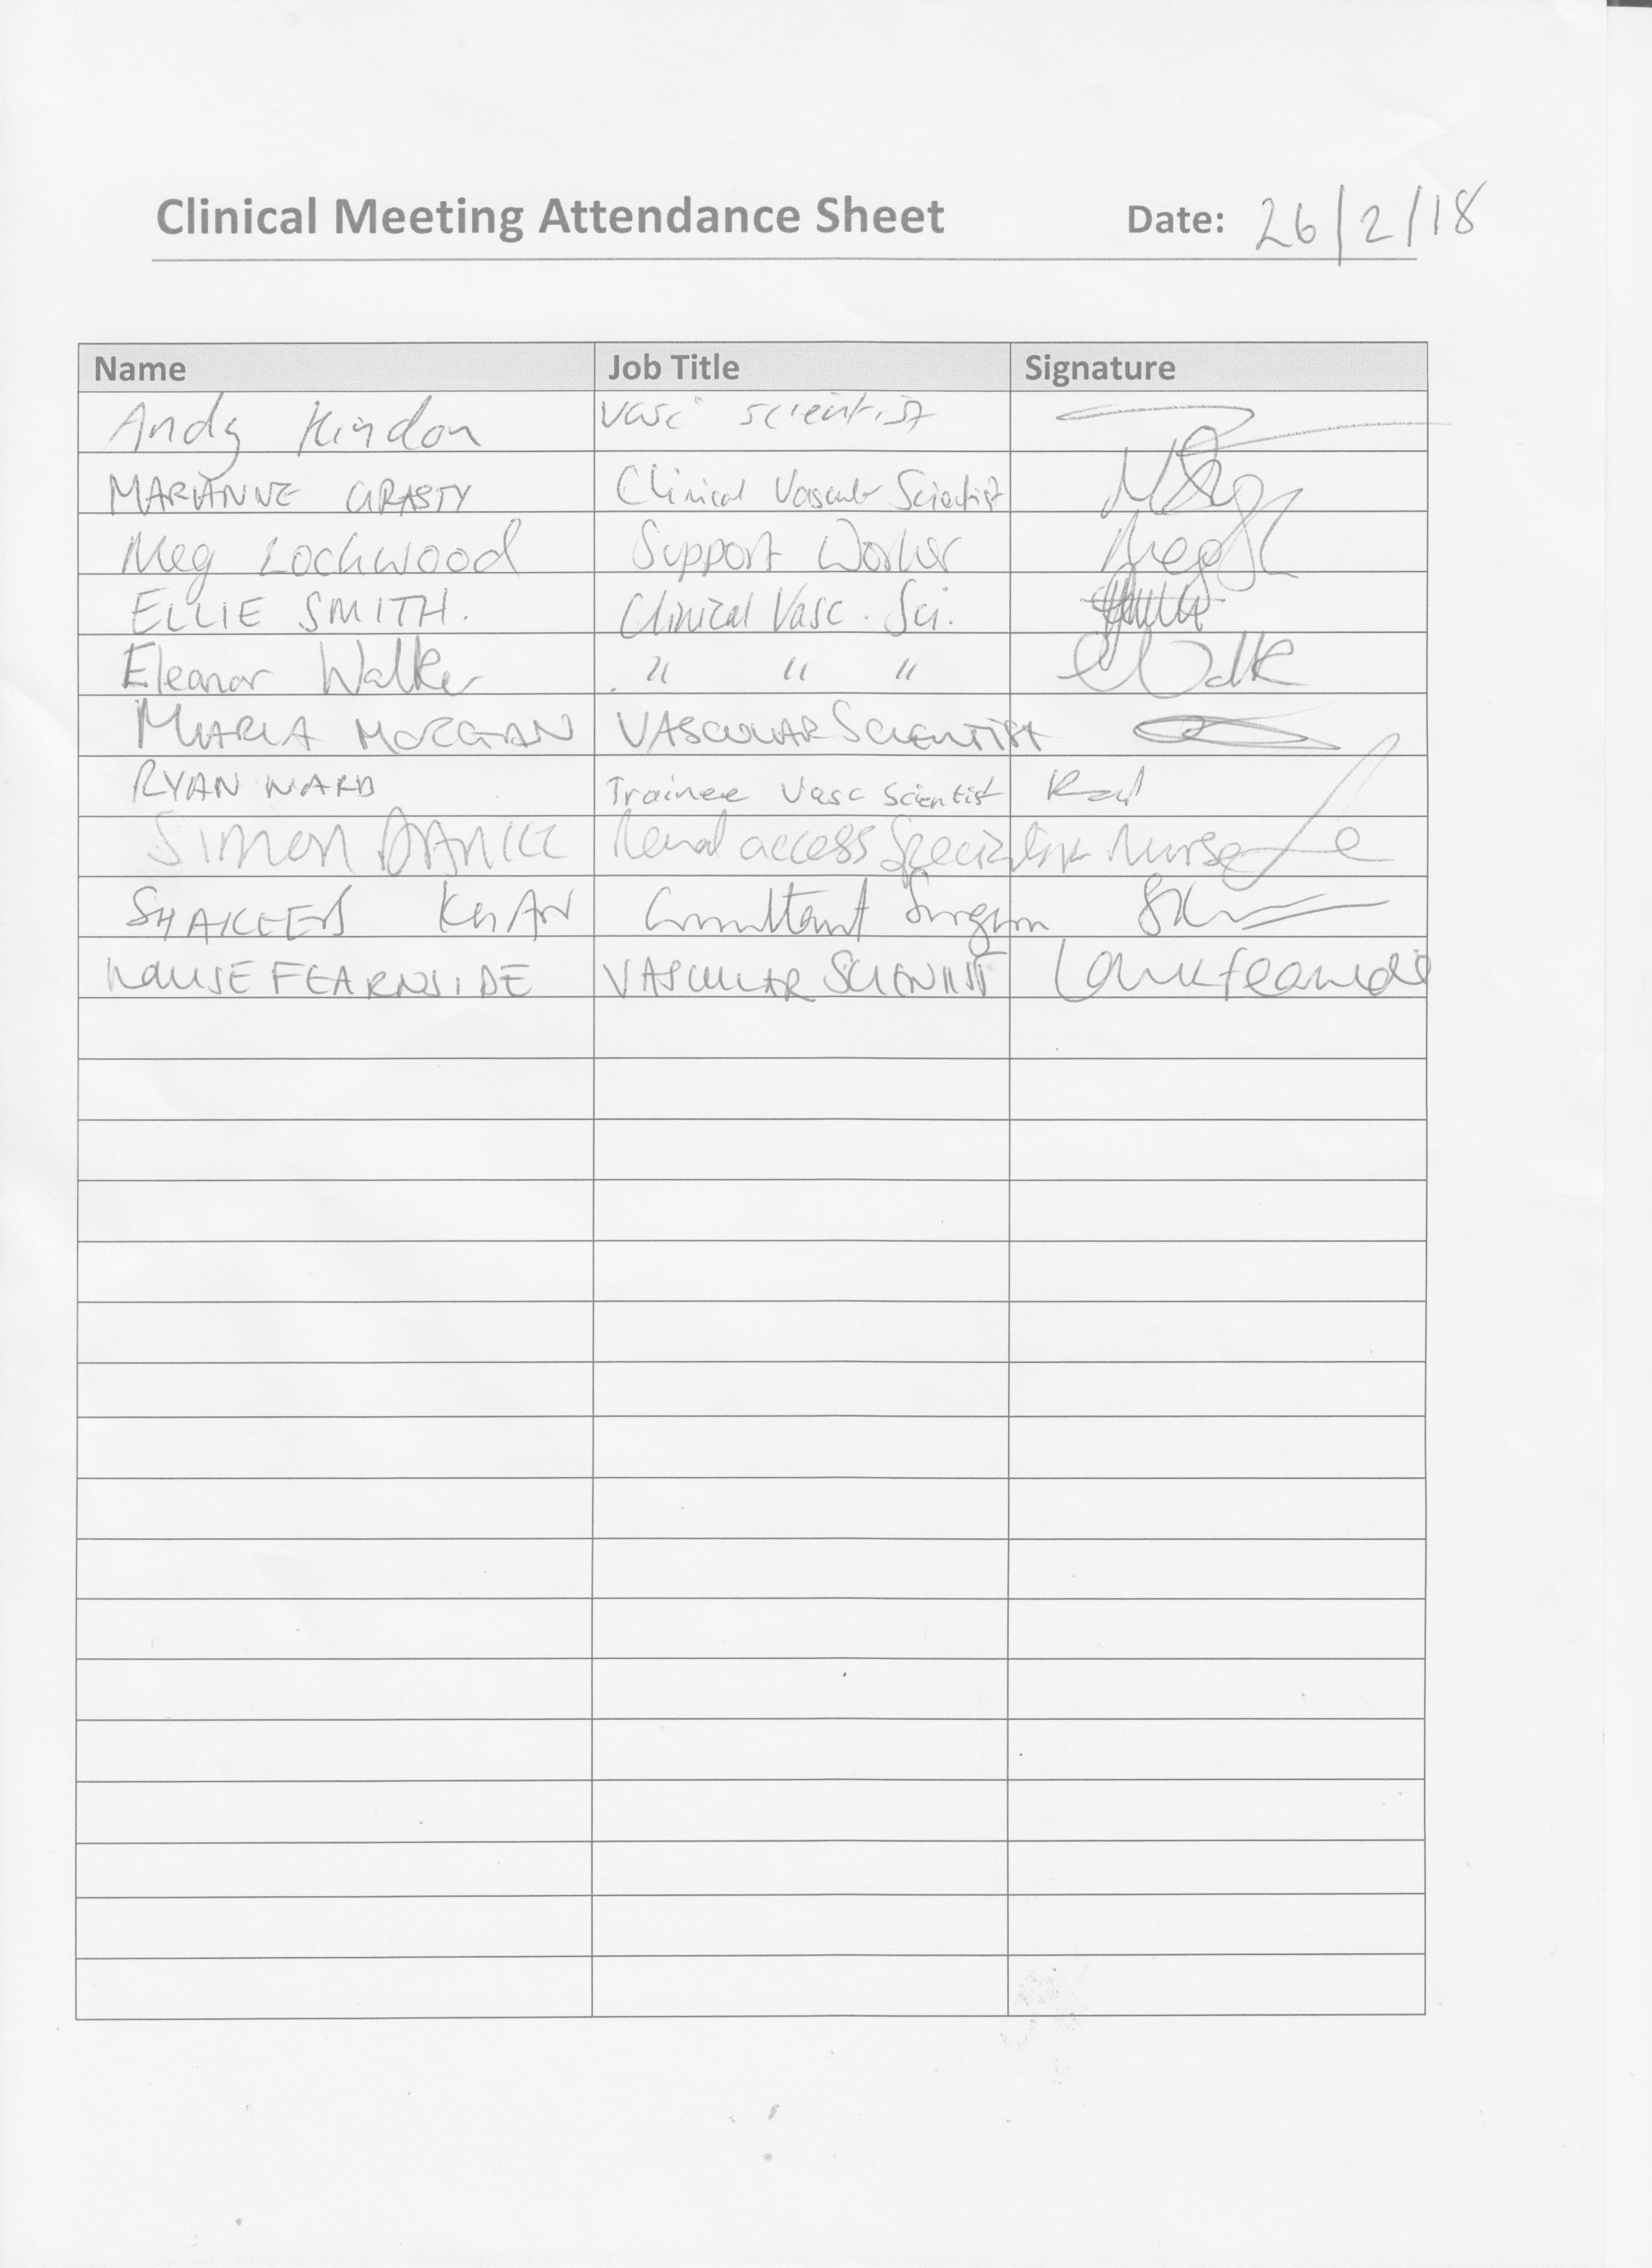 Clinical Meeting Attendance Sheet Date: 26/2/18
Name Job Title Signature
Andy Kindon Vasc scientist
MARIANNE GRASTY Clinical Vascular Scientist
Meg Lockwood Support Worker
ELLIE SMITH. Clinical Vasc. Sci.
Eleanor Walker " " "
MARIA MORGAN VASCULAR SCIENTIST
RYAN WARD Trainee Vasc Scientist
SIMON Renal access Specialist Nurse
SHAKEEB KHAN Consultant Surgeon
LOUISE FEARNSIDE VASCULAR SCIENTIST